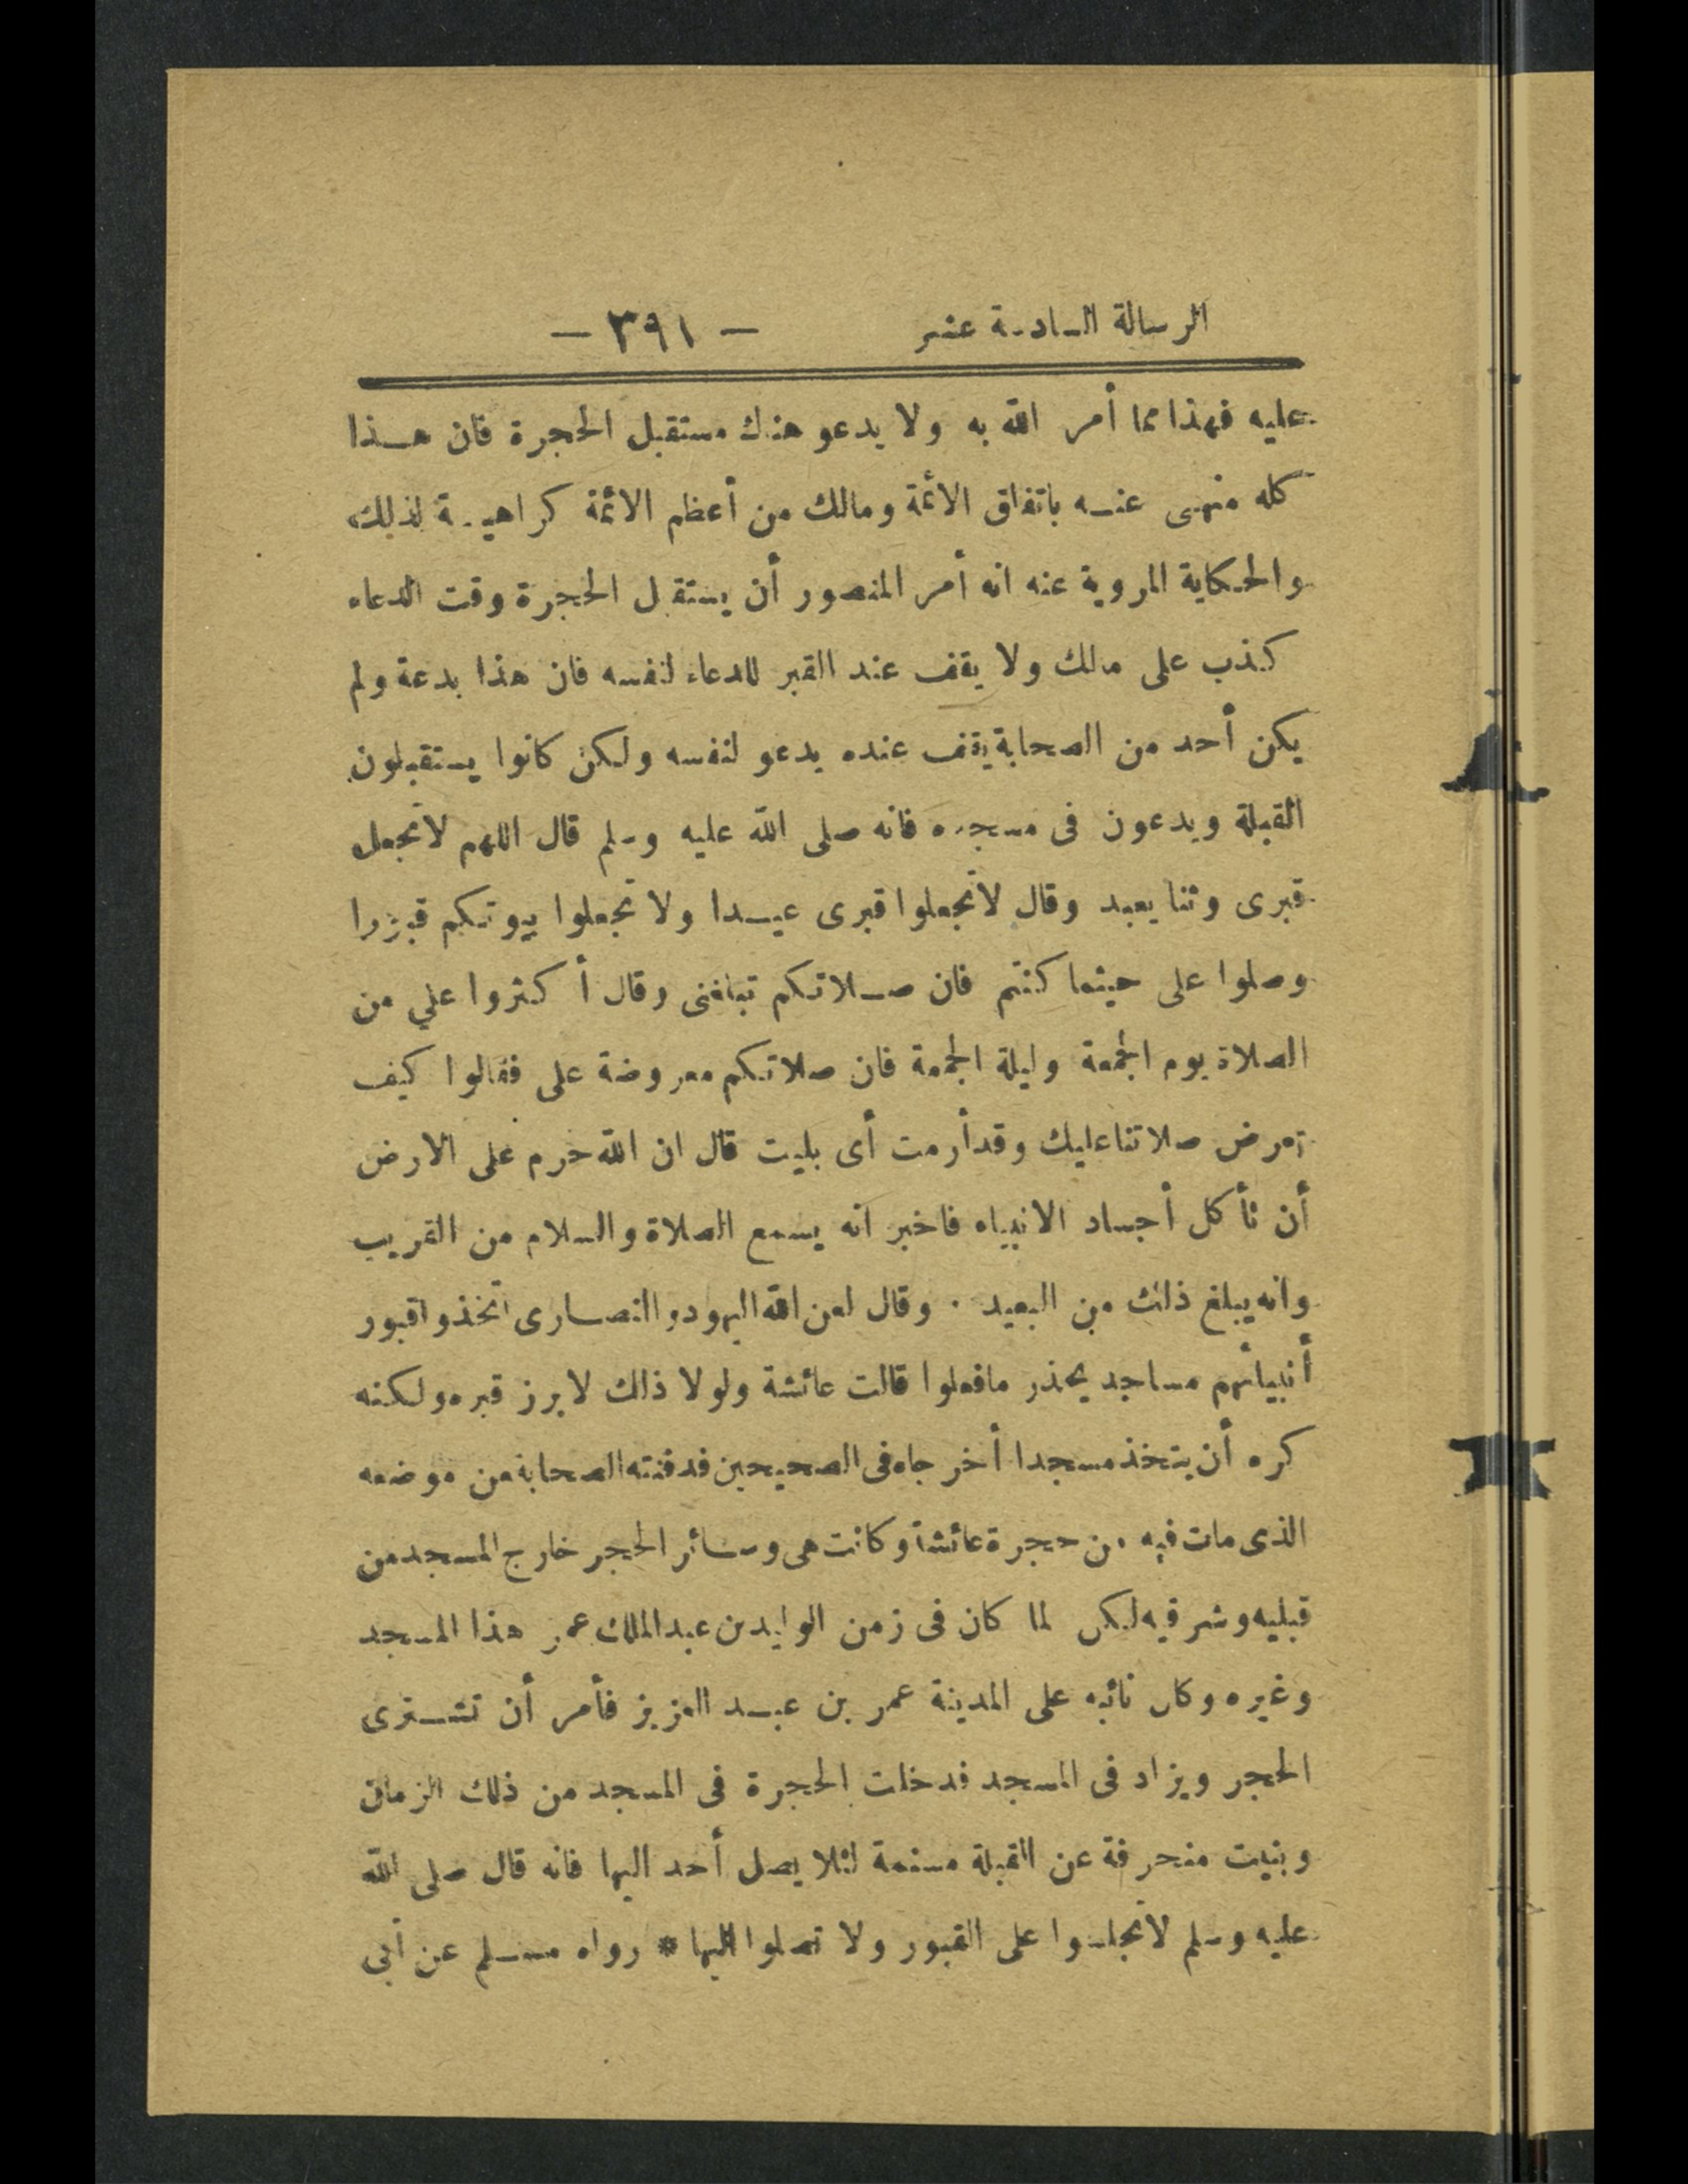 الرسالة السادسة عشر — ٣٩١ —
عليه فهذا مما أمر الله به ولا يدعو هناك مستقبل الحجرة فان هذا
كله منهى عنه باتفاق الائمة ومالك من أعظم الائمة كراهية لذلك
والحكاية المروية عنه انه أمر المنصور أن يستقبل الحجرة وقت الدعاء
كذب على مالك ولا يقف عند القبر للدعاء لنفسه فان هذا بدعة ولم
يكن أحد من الصحابة يقف عنده يدعو لنفسه ولكن كانوا يستقبلون
القبلة ويدعون فى مسجده فانه صلى الله عليه وسلم قال اللهم لا تجعل
قبرى وثنا يعبد وقال لا تجعلوا قبرى عيدا ولا تجعلوا بيوتكم قبورا
وصلوا على حيثما كنتم فان صلاتكم تبلغنى وقال أكثروا علي من
الصلاة يوم الجمعة وليلة الجمعة فان صلاتكم معروضة على فقالوا كيف
تعرض صلاتنا عليك وقد أرمت أى بليت قال ان الله حرم على الارض
أن تأكل أجساد الانبياء فاخبر انه يسمع الصلاة والسلام من القريب
وانه يبلغ ذلك من البعيد . وقال لعن الله اليهود والنصارى اتخذوا قبور
أنبيائهم مساجد يحذر ما فعلوا قالت عائشة ولولا ذلك لابرز قبره ولكنه
كره أن يتخذ مسجدا أخرجاه فى الصحيحين فدفنته الصحابة من موضعه
الذى مات فيه من حجرة عائشة وكانت هى وسائر الحجر خارج المسجد من
قبليه وشرقيه لكن لما كان فى زمن الوليد بن عبد الملك عمر هذا المسجد
وغيره وكان نائبه على المدينة عمر بن عبد العزيز فأمر أن تشترى
الحجر ويزاد فى المسجد فدخلت الحجرة فى المسجد من ذلك الزمان
وبنيت منحرفة عن القبلة مسنمة لئلا يصل أحد اليها فانه قال صلى الله
عليه وسلم لا تجلسوا على القبور ولا تصلوا اليها * رواه مسلم عن أبى